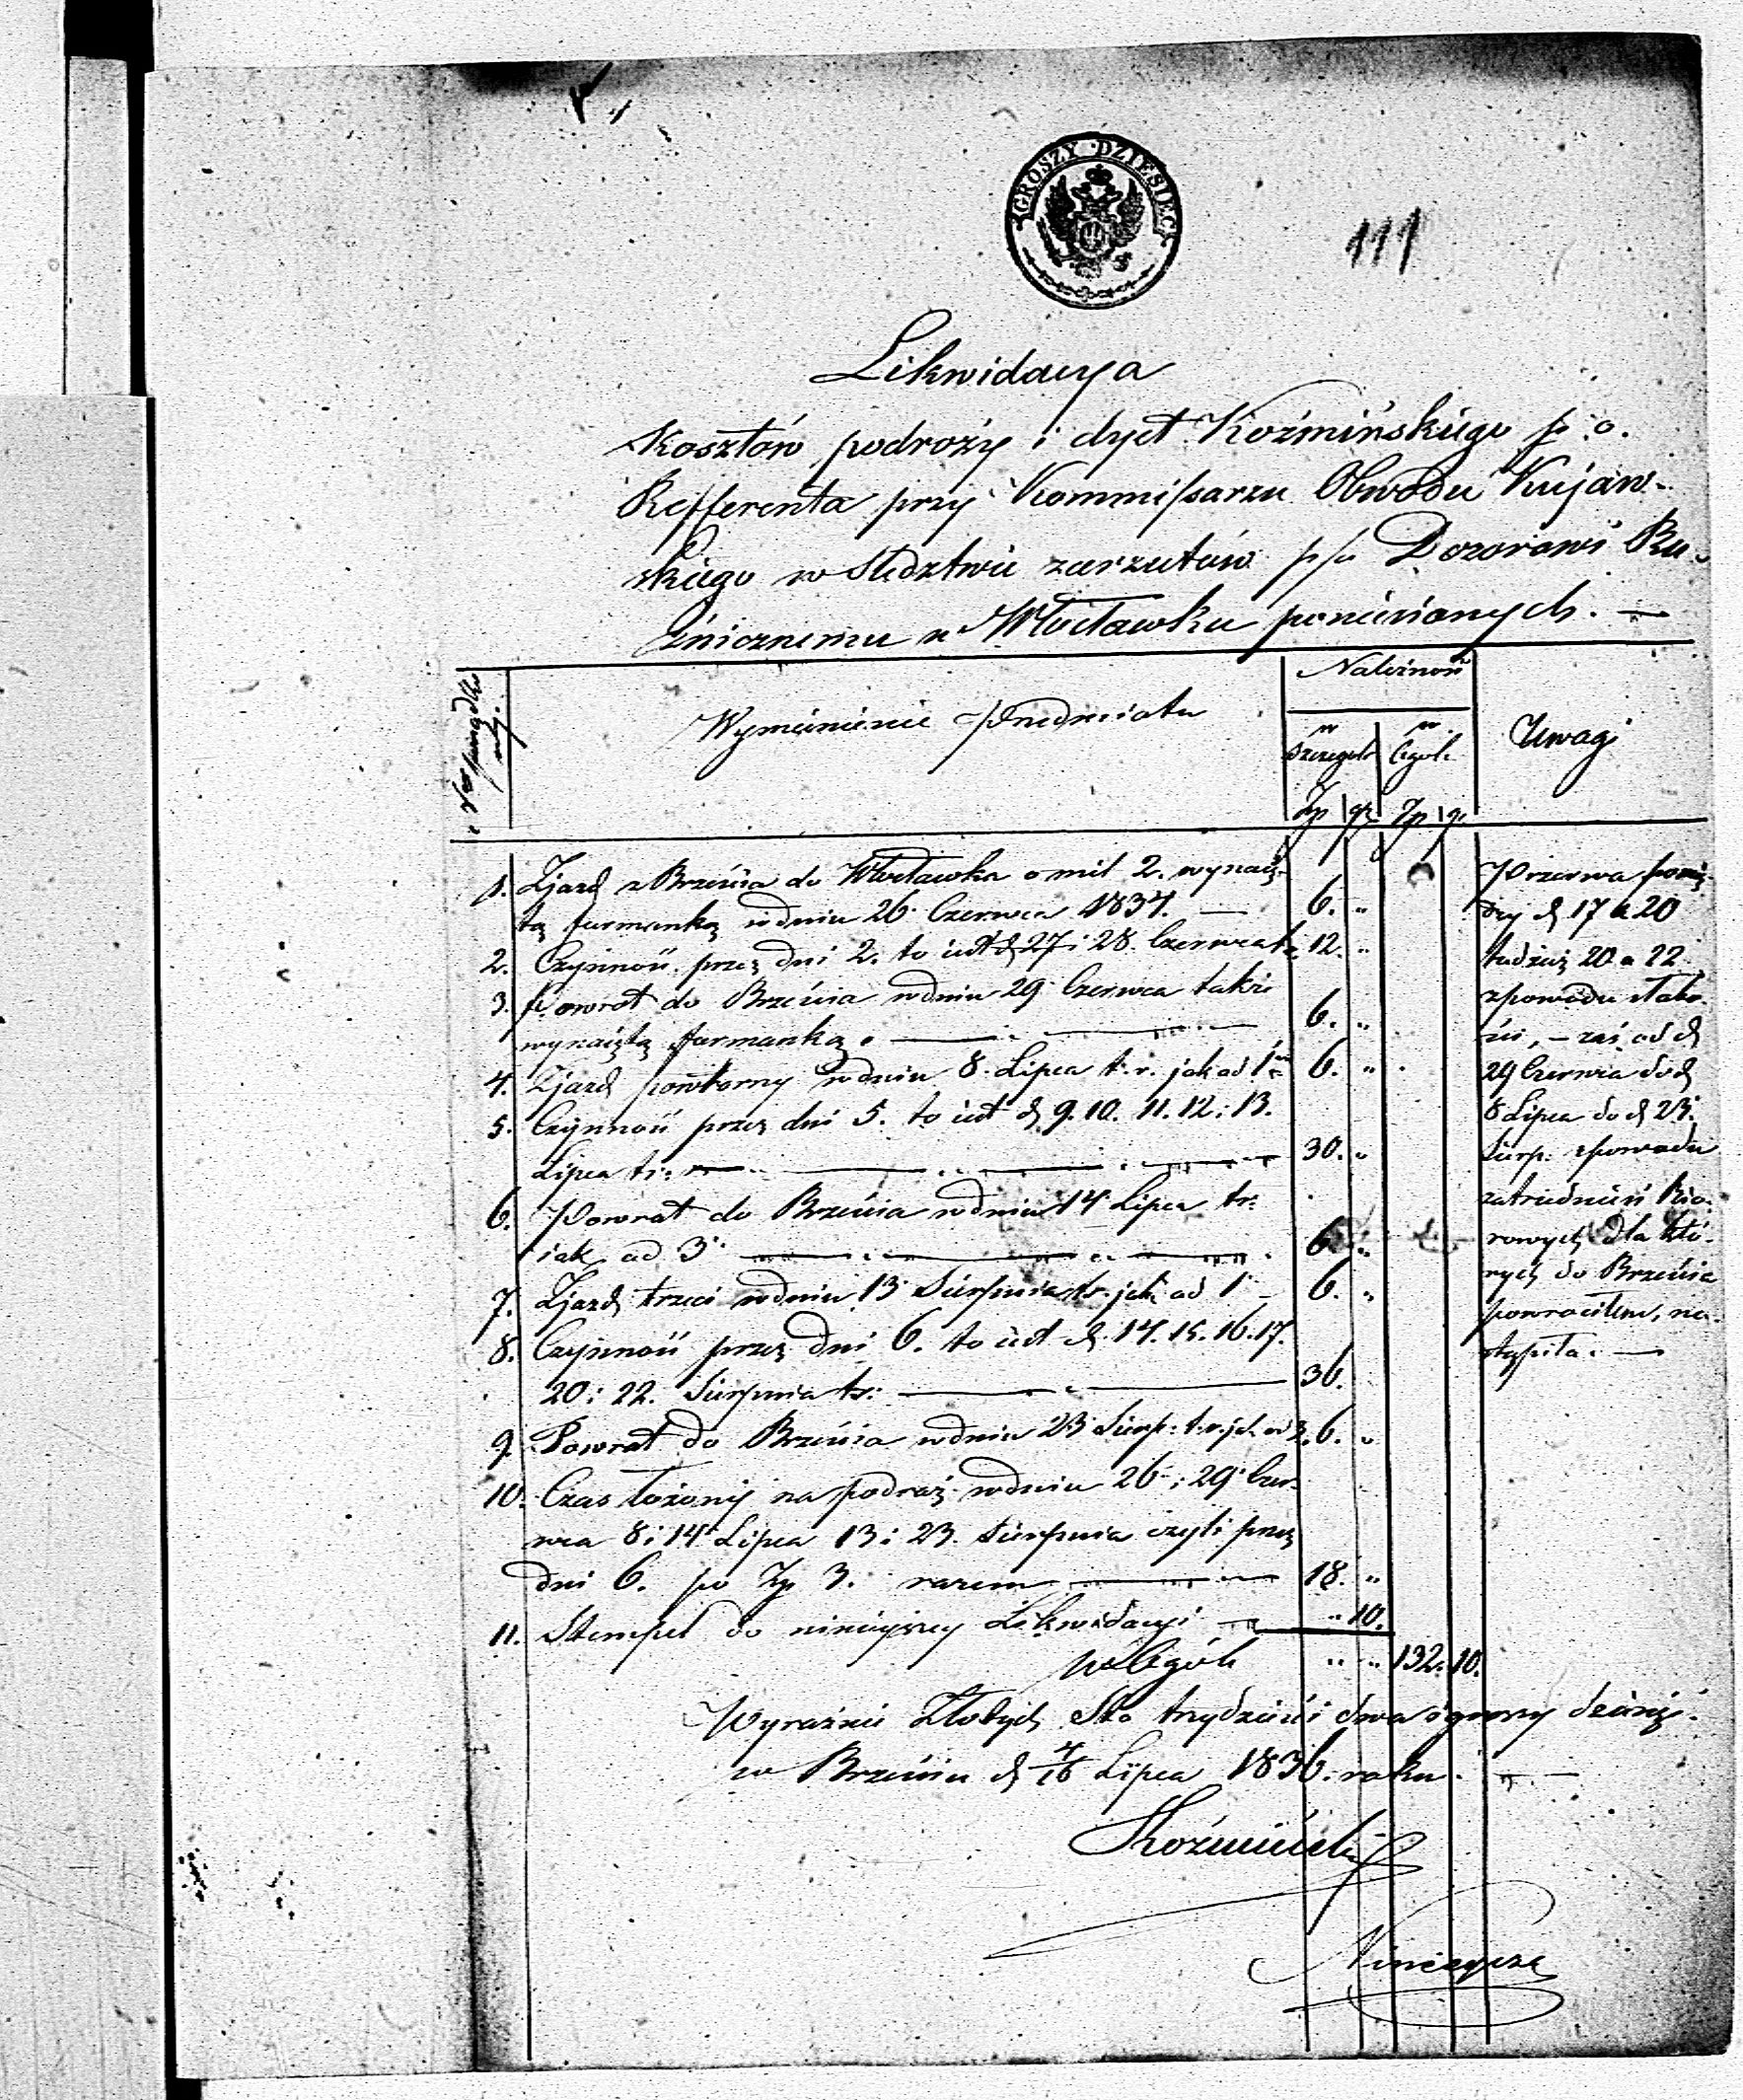 GROSZY DZIESIĘĆ
111
Likwidacya
Kosztów podroży i dyet Koźmińskiego p. o.
Refferenta przy Kommissarzu Obwodu Kujaw-
skiego w śledztwie zarzutów p/o Dozorowi Bu-
źnicznemu w Włocławku poniesionych. —
Wymienienie Przedmiotu
Należność
Uwagi
w szczegole
w Ogole
Zp gr Zp g.
1. Zjazd z Brześcia do Włocławka o mil 2. wynaię-
tą furmanką w dniu 26 Czerwca 1834. — 6. "
2. Czynność przez dni 2. to iest d 27 i 28. Czerwca t. r. 12. "
3. Powrot do Brześcia w dniu 29 Czerwca także
wynaiętą furmanką. — 6. "
4. Zjazd powtorny w dniu 8. Lipca t. r. jak ad 1 6. "
5. Czynność przez dni 5. to iest d 9. 10. 11. 12. i 13.
Lipca tr: — 30. "
6. Powrot do Brześcia w dniu 14 Lipca tr:
iak ad 3 — 6. "
7. Zjazd trzeci w dniu 13 Sierpnia tr. jak ad 1 — 6. "
8. Czynność przez dni 6. to iest d. 14. 15. 16. 17.
20 i 22. Sierpnia tr: — 36.
9. Powrot do Brześcia w dniu 23 Sierp: t. r. jak ad 3. 6. "
10. Czas łożony na podroż w dniu 26 i 29 Czer-
wca 8 i 14 Lipca 13 i 23. Sierpnia czyli przez
dni 6. po Zp 3. razem — 18. "
11. Stempel do ninieyszey Likwidacyi — " 10.
w Ogóle " " 132. 10.
Przerwa pomię-
dzy d 17 a 20
tudzież 20 a 22
z powodu słabo-
ści, — zaś od d
29 Czerwca do d
8 Lipca do d 23.
Sierp. z powodu
zatrudnień Biu-
rowych dla któ-
rych do Brześcia
powrociłem, na-
stąpiła. —
Wyraźnie Złotych Sto trzydzieści dwa i groszy dziesięć.
w Brześciu d 4/16 Lipca 1836. roku. —
Koźmiński